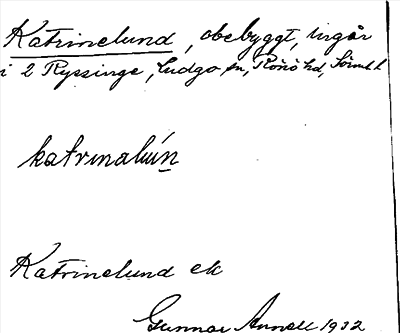 Katrinelund, obebyggt, ingår
i 2 Ryssinge, Ludgo sn, Rönö hd, Söml. l
katrinalún
Katrinelund ek
Gunnar Annell 1932